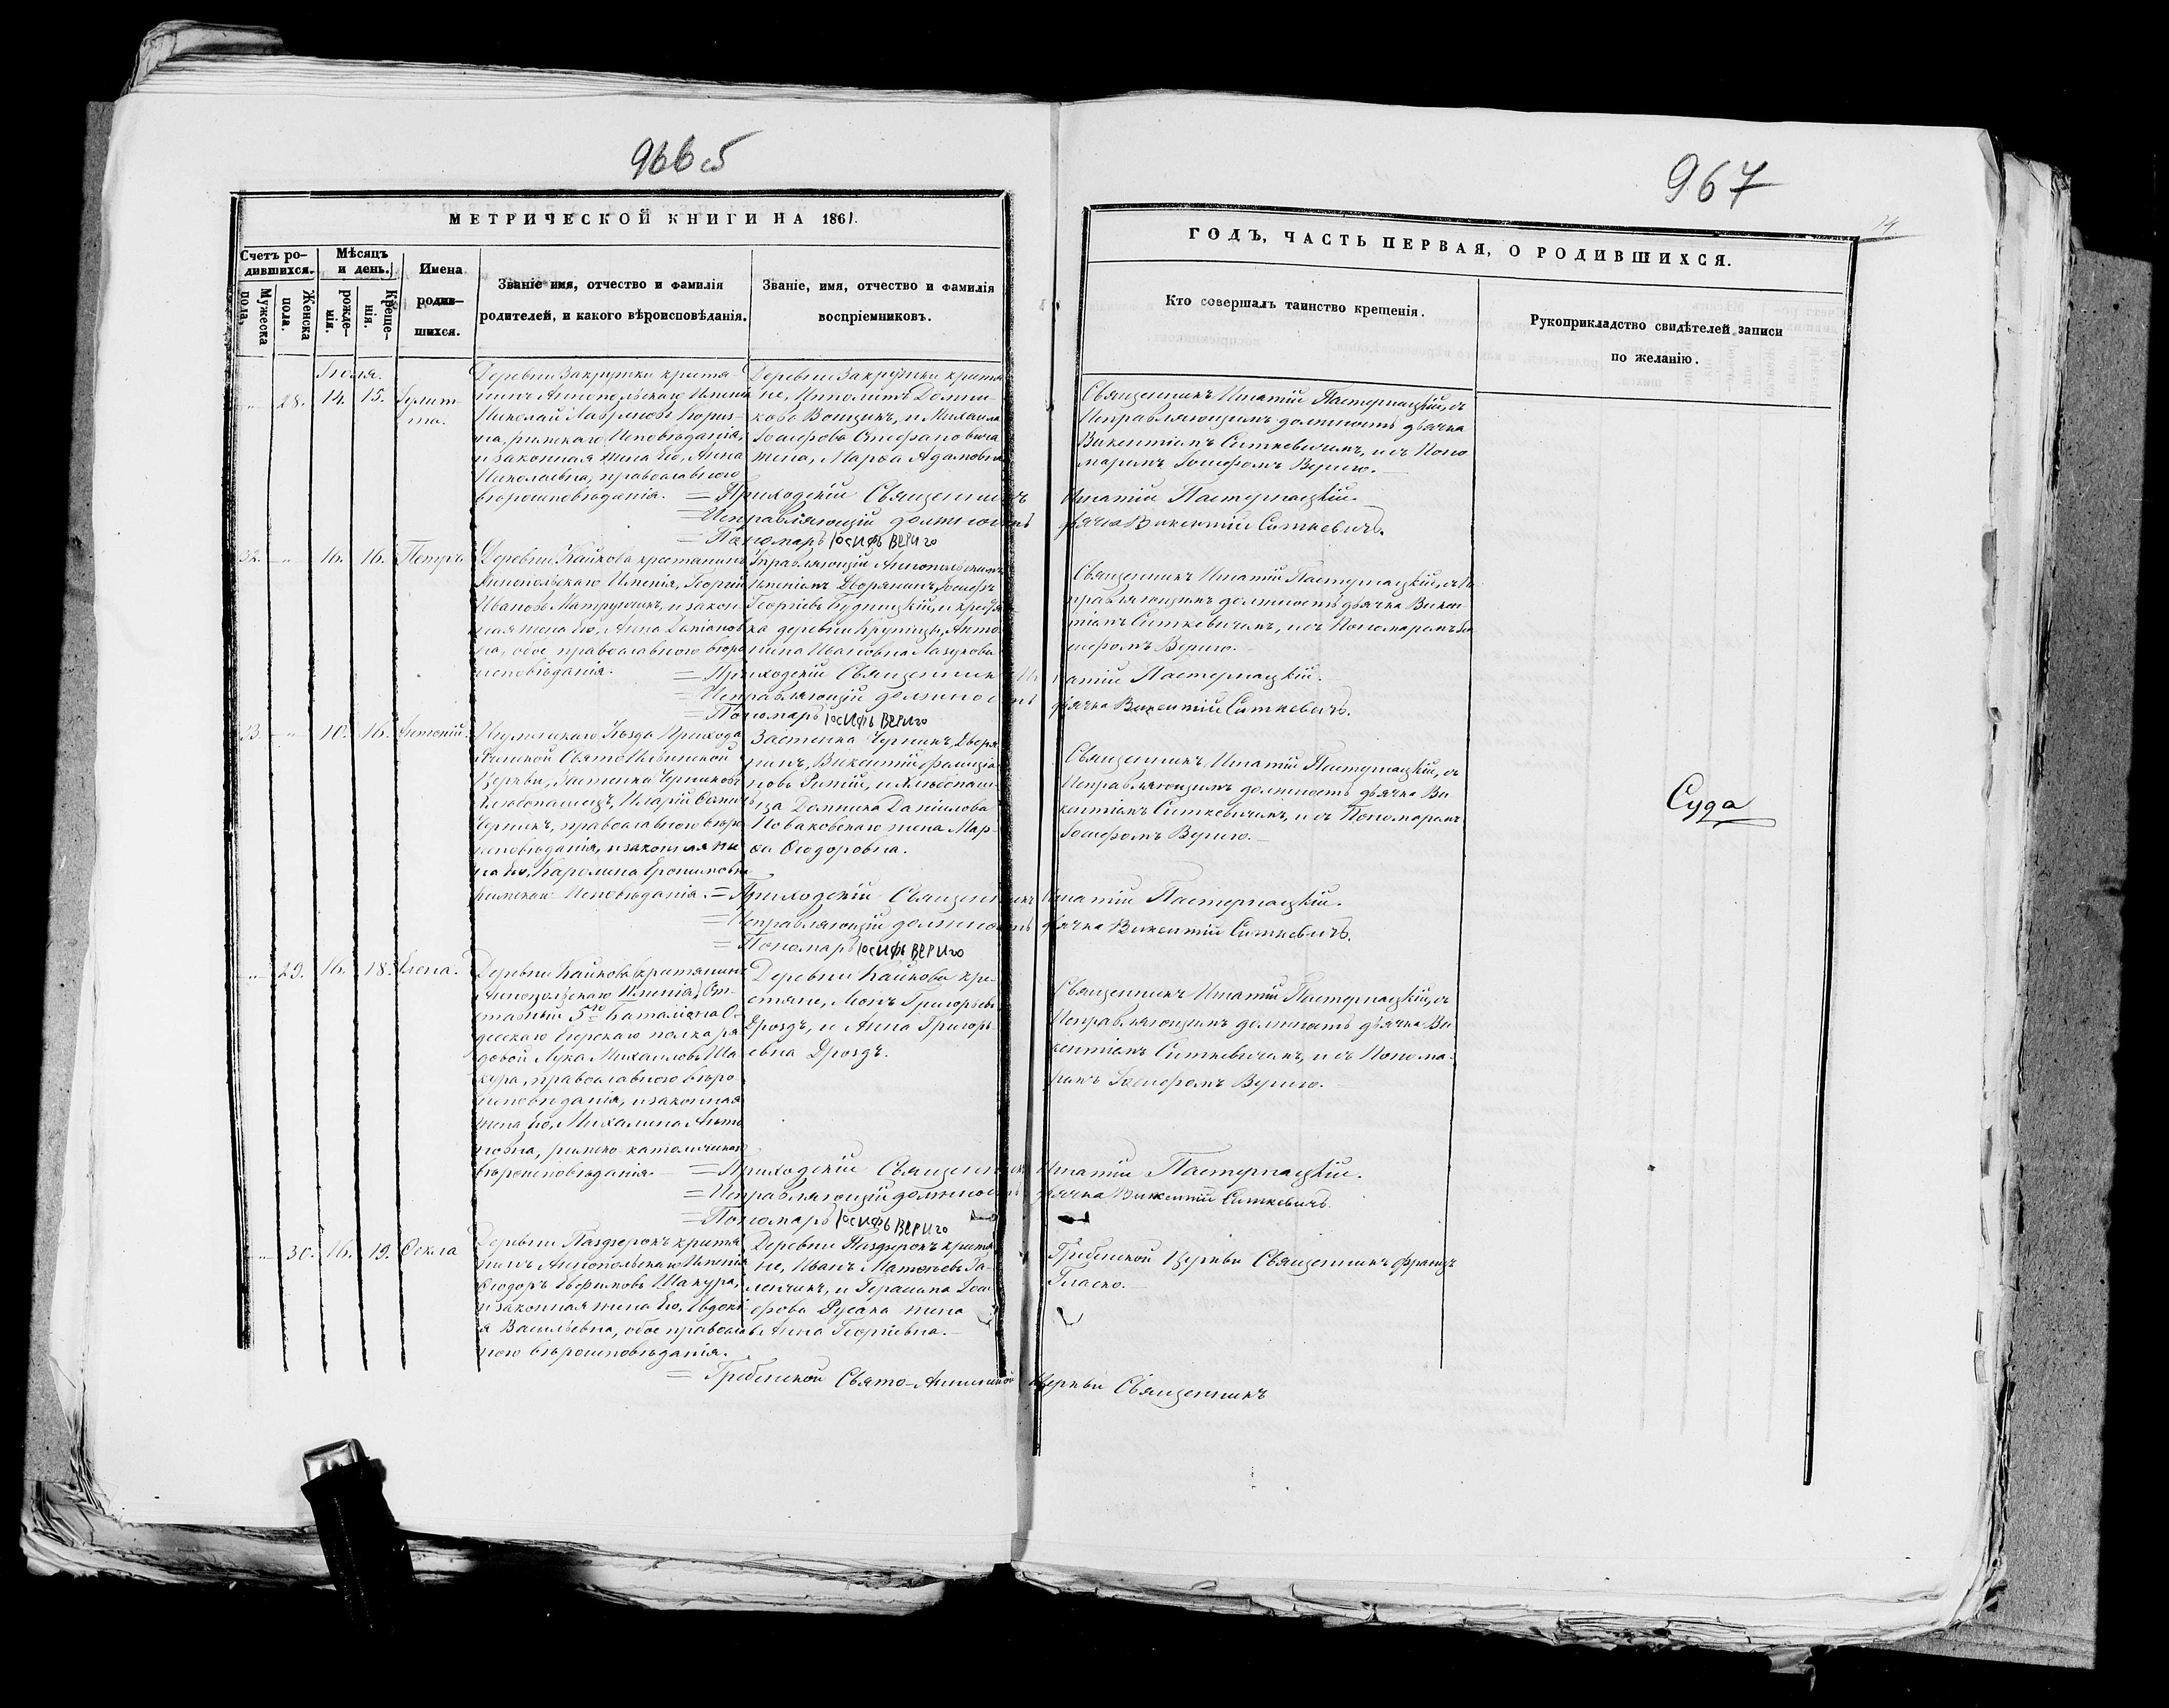 966 об
967
14.
МЕТРИЧЕСКОЙ КНИГИ НА 1861.
ГОДЪ, ЧАСТЬ ПЕРВАЯ, О РОДИВШИХСЯ.
Счетъ ро-
дившихся.
Мужеска
пола.
Женска
пола.
Мѣсяцъ
и день.
рожде-
нія.
Креще-
нія.
Имена
родив-
шихся.
Званіе имя, отчество и фамилія
родителей, и какого вѣроисповѣданія.
Званіе, имя, отчество и фамилія
воспріемниковъ.
Кто совершалъ таинство крещенія.
Рукоприкладство свидѣтелей записи
по желанію.
Іюля.
28. 14. 15. Іулит-
та.
Деревни Закружки крестья-
нинъ Аннопольскаго Имѣнія
Николай
на, римскаго Исповѣданія,
и законная жена Его, Анна
Николаевна, православного
вѣроисповѣданія.
Деревни Закружки крестья
не, Ипполитъ Домини-
ковъ Войцикъ, и Михаила
Іосифова Стефановича
жена, Марѳа Адамовна
Священникъ Игнатій Пастернацкій, съ
Исправляющимъ должность дьячка
Викентіемъ Ситкевичемъ, и съ Поно
маремъ Іосифомъ Вериго.
= Приходскій Священникъ Игнатій Пастернацкій.
= Исправляющій должность дьячка Викентій Ситкевичъ.
= Пономарь Іосифъ Вериго
32. 16. 16. Петръ.
Деревни Кайкова крестьянинъ
Аннопольскаго Имѣнія, Георгій
Ивановъ и закон-
ная жена Его, Анна Даміанов
на, обое православного вѣро
исповѣданія.
Управляющій Аннопольскимъ
Имѣніемъ Дворянинъ Іосифъ
Георгіевъ Будницкій, и крестьян
ка деревни Крупицы, Анто
нина Ивановна
Священникъ Игнатій Пастернацкій, съ Ис
правляющимъ должность дьячка Викен
тіемъ Ситкевичемъ, и съ Пономаремъ Іо
сифомъ Вериго.
= Приходскій Священникъ Игнатій Пастернацкій.
= Исправляющій должность дьячка Викентій Ситкевичъ.
= Пономарь Іосифъ Вериго
33 10. 16. Антоній.
Игуменскаго Уѣзда Прихода
Свято Ильинской
Церкви, Застенка Черниковъ
Хлѣбопашецъ, Иларій
Черникъ, православного вѣро
исповѣданія, и законная же
на Его, Каролина
римскаго Исповѣданія.
Застенка Черникъ, Дворя
нинъ, Викентій
новъ и Хлѣбопаш-
ца Доминика Даніилова
Новаковскаго жена Мар-
ѳа Ѳеодоровна.
Священникъ Игнатій Пастернацкій, съ
Исправляющимъ должность дьячка Ви
кентіемъ Ситкевичемъ, и съ Пономаремъ
Іосифомъ Вериго.
Суда
= Приходскій Священникъ Игнатій Пастернацкій.
= Исправляющій должность дьячка Викентій Ситкевичъ.
= Пономарь Іосифъ Вериго
29. 16. 18. Елена.
Деревни Кайкова (крестьянинъ
Аннопольскаго Имѣнія) От-
ставный 5го Баталіона О-
десскаго Егерскаго полка ря
довой Лука Михаиловъ Ша
кура, православного вѣро
исповѣданія, и законная
жена Его, Михалина Анто
новна, римско-католическаго
вѣроисповѣданія.
Деревни Кайкова кре-
стяне, Григорьевъ
Дроздъ, и Анна Григорь-
евна Дроздъ.
Священникъ Игнатій Пастернацкій, съ
Исправляющимъ должность дьячка Ви
кентіемъ Ситкевичемъ, и съ Понома-
ремъ Іосифомъ Вериго.
= Приходскій Священникъ Игнатій Пастернацкій.
= Исправляющій должность дьячка Викентій Ситкевичъ.
= Пономарь Іосифъ Вериго
30. 16. 19. Ѳекла
Деревни Паздерокъ крестья
нинъ Аннопольскаго Имѣнія
Ѳеодоръ Евфимовъ Шакура,
и законная жена Его, Евдокі
я Васильевна, обое православ
ного вѣроисповѣданія.
Деревни Паздерокъ крестья
не, Иванъ Матѳеевъ Га-
ленчикъ, и Герасима Іоси
фова Русака жена
Анна Георгіевна.
Гребенской Церкви Священникъ Францъ
Гласко.
= Гребенской Свято-Аннинской Церкви Священникъ